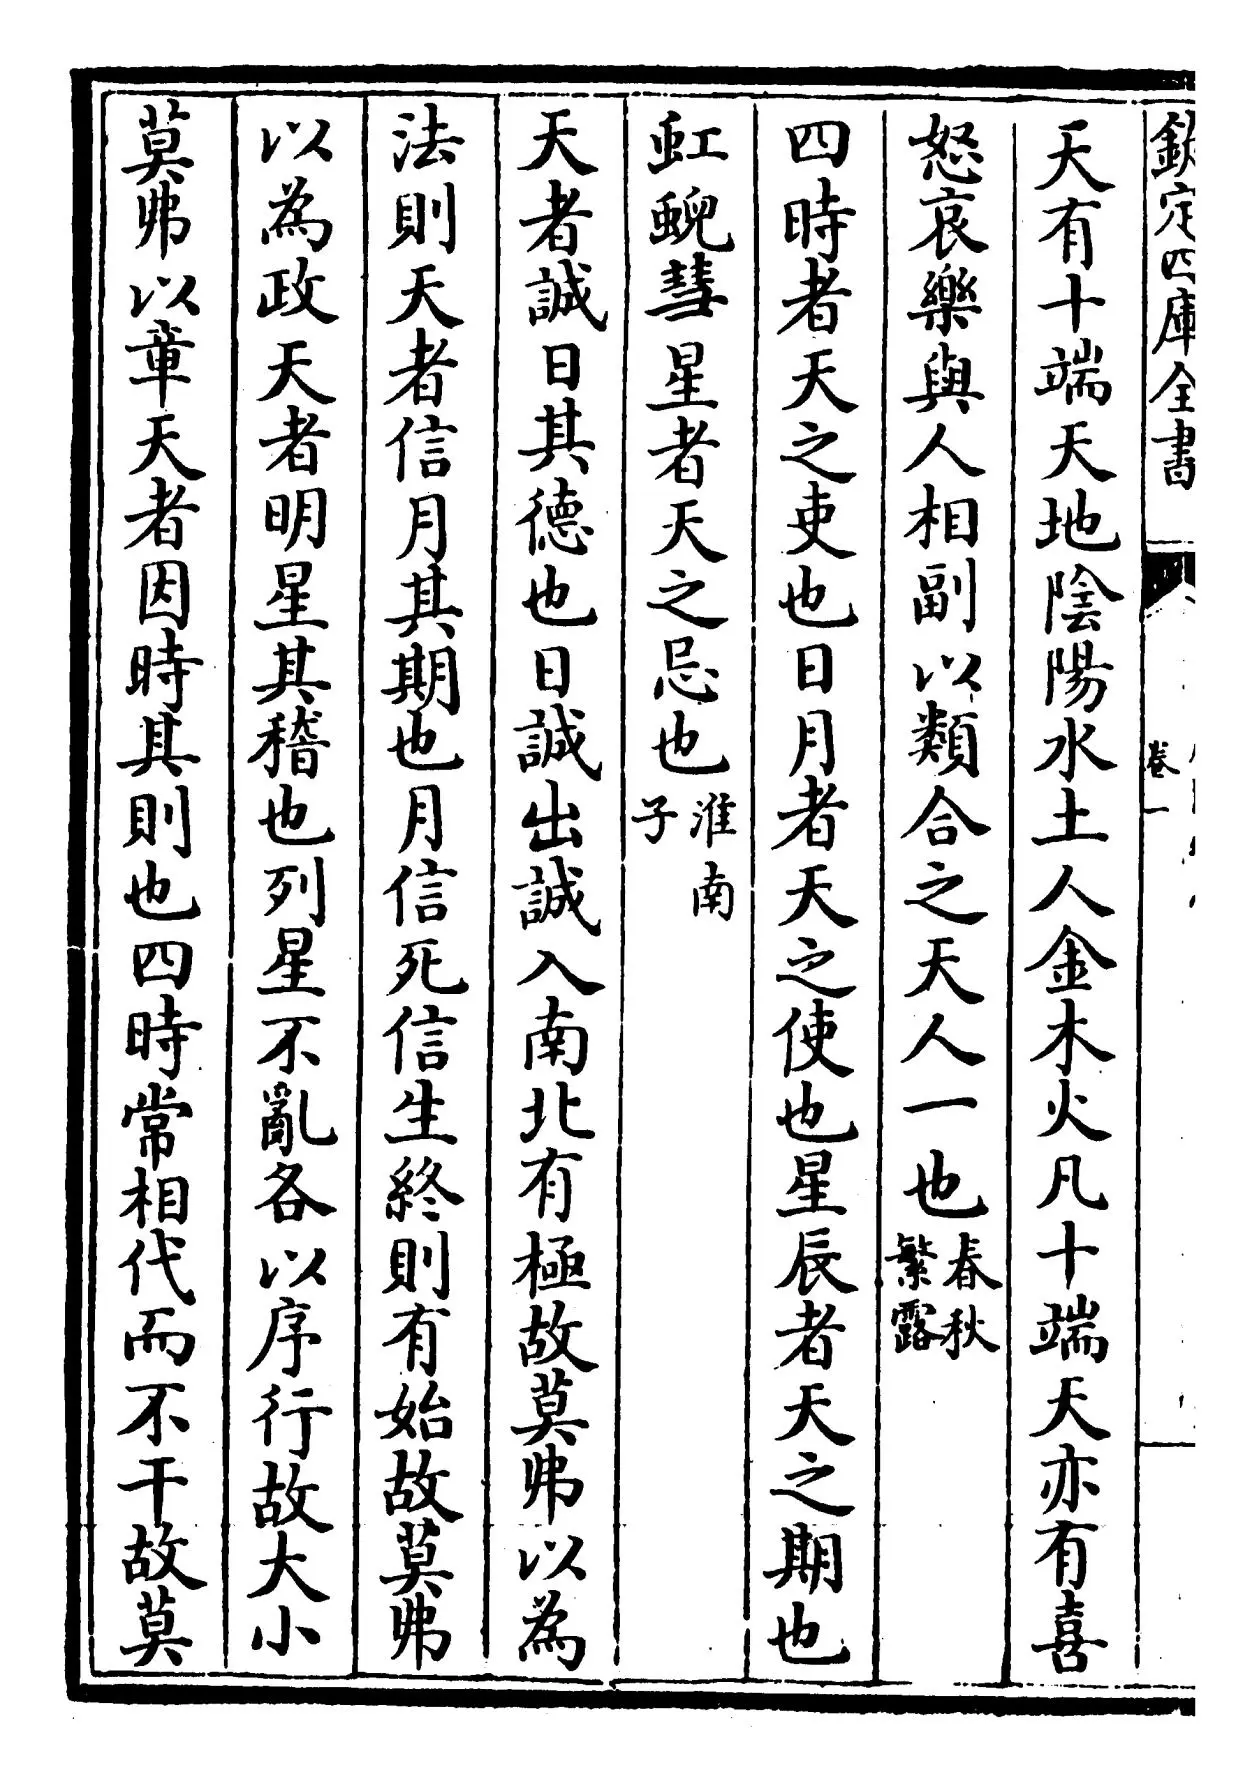 欽定四庫全書
卷一
天有十端天地陰陽水土人金木火凡十端天亦有喜
怒哀樂與人相副以類合之天人一也春秋
繁露
四時者天之吏也日月者天之使也星辰者天之期也
虹蜺彗星者天之忌也淮南
子
天者誠日其德也日誠出誠入南北有極故莫弗以為
法則天者信月其期也月信死信生終則有始故莫弗
以為政天者明星其稽也列星不亂各以序行故大小
莫弗以章天者因時其則也四時常相代而不干故莫